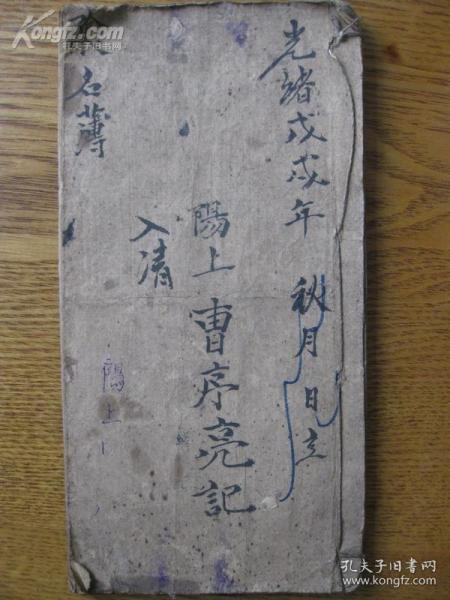 光緒戊戌年 秋月日立
陽上曹序亮記
入清
名薄
陽上
Kongfz.com
孔夫子旧书网
孔夫子旧书网
www.kongfz.com